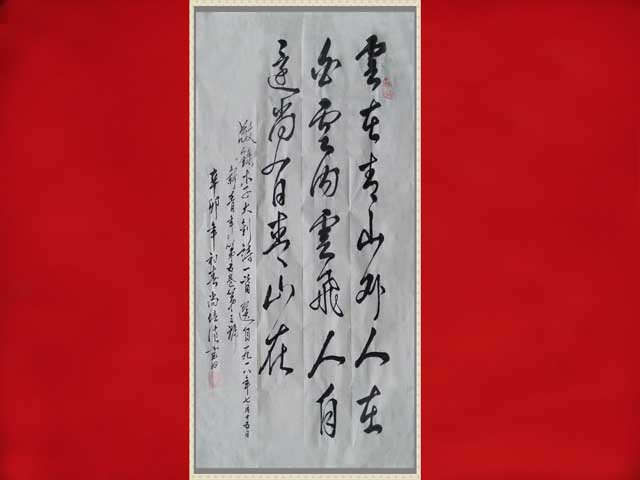 雲在青山外人在
白雲內雲飛人自
還尚有青山在
敬錄李大釗詩一首選自一九一八年七月十五日
新青年第五卷第三號
辛卯年初春尚培